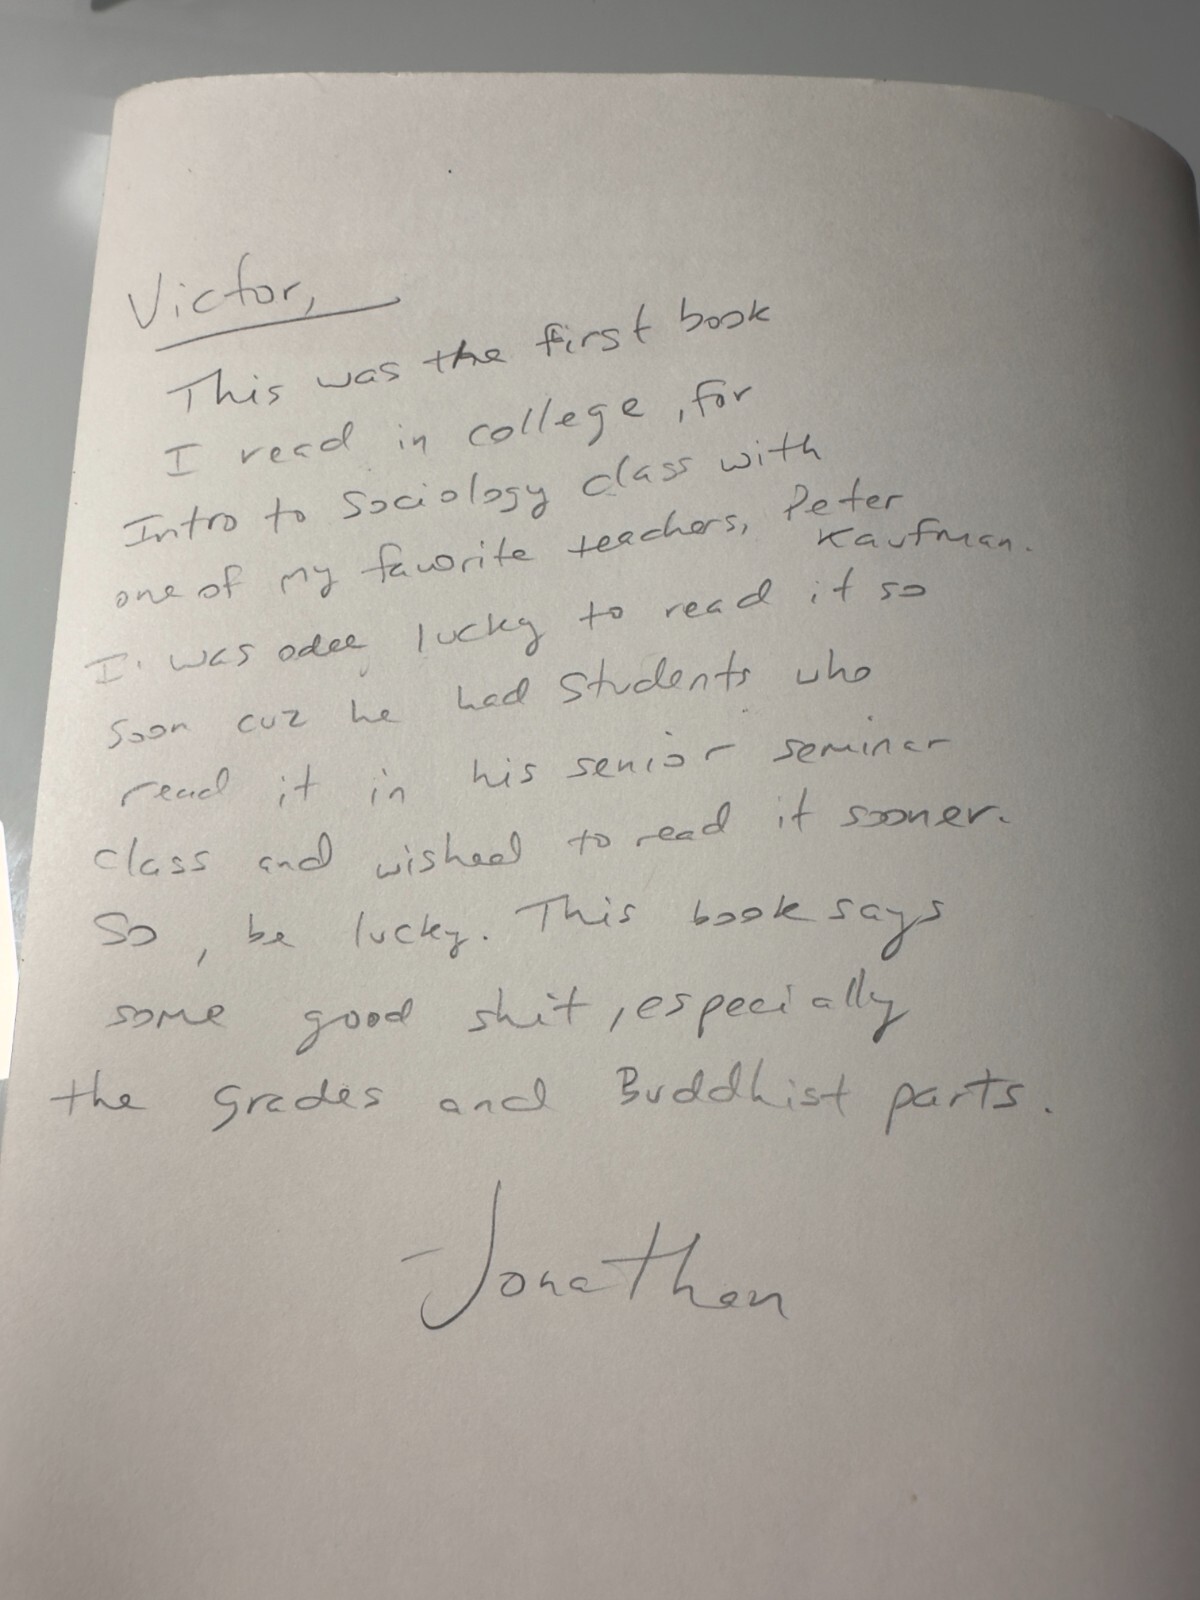 Victor,
This was the first book
I read in college, for
Intro to Sociology class with
one of my favorite teachers, Peter
Kaufman.
I was odee lucky to read it so
soon cuz he had students who
read it in his senior seminar
class and wished to read it sooner.
So, be lucky. This book says
some good shit, especially
the grades and Buddhist parts.
-Jonathan